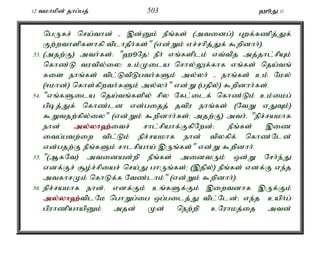 12 வமாமின் தாப்பதி 503 ஹூது 11
பெருகச் செய்வான் - இன்னும் நீங்கள் (அவனைப்) புறக்கணித்துக்
குற்றவாளிகளாகி விடாதீர்கள்" (என்றும் எச்சரித்துக் கூறினார்).
53. (அதற்கு) அவர்கள்: "ஹூதே! நீர் எங்களிடம் எவ்வித அத்தாட்சியும்
கொண்டு வரவில்லை; உம்முடைய சொல்லுக்காக எங்கள் தெய்வங்
களை நாங்கள் விட்டுவிடுபவர்களும் அல்லர் - நாங்கள் உம் மேல்
(ஈமான்) கொள்கிறவர்களும் அல்லர்" என்று (பதில்) கூறினார்கள்.
54. "எங்களுடைய தெய்வங்களில் சில கேட்டைக் கொண்டும் உம்மைப்
பிடித்துக் கொண்டன என்பதைத் தவிர நாங்கள் (வேறு எதுவும்)
கூறுவதற்கில்லை" (என்றும் கூறினார்கள்; அதற்கு) அவர். "நிச்சயமாக
நான் அல்லாஹ்வைச் சாட்சியாக்குகிறேன்; நீங்கள் இணை
வைப்பவற்றை விட்டும் நிச்சயமாக நான் விலகிக் கொண்டேன்
என்பதற்கு நீங்களும் சாடசியாய் இருங்கள்" என்று கூறினார்.
55. "(ஆகவே) அவனையன்றி நீங்கள் அனைவரும் ஒன்று சேர்ந்து
எனக்குச் சூழ்ச்சியைச் செய்து பாருங்கள்; (இதில்) நீங்கள் எனக்கு எந்த
அவகாசமும் கொடுக்க வேண்டாம்" (என்றும் கூறினார்).
56. நிச்சயமாக நான். எனக்கும் உங்களுக்கும் இறைவனாக இருக்கும்
அல்லாஹ்விடமே பொறுப்பை ஒப்படைத்து விட்டேன்; எந்த உயிர்ப்
பிராணியாயினும் அதன் முன் நெற்றி உரோமத்தை அவன்